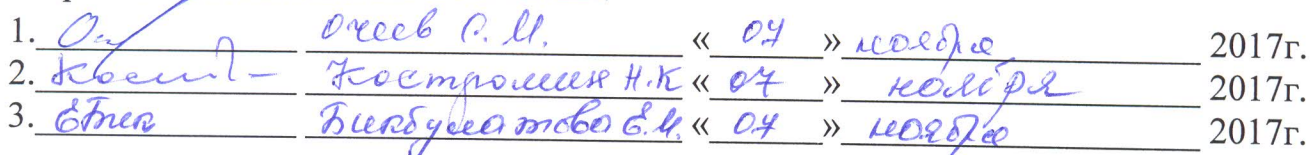 1. Очеев С. М. « 07 » ноября 2017г.
2. Костромин Н.К « 07 » ноября 2017г.
3. Бикбулатова Е.М. « 07 » ноября 2017г.